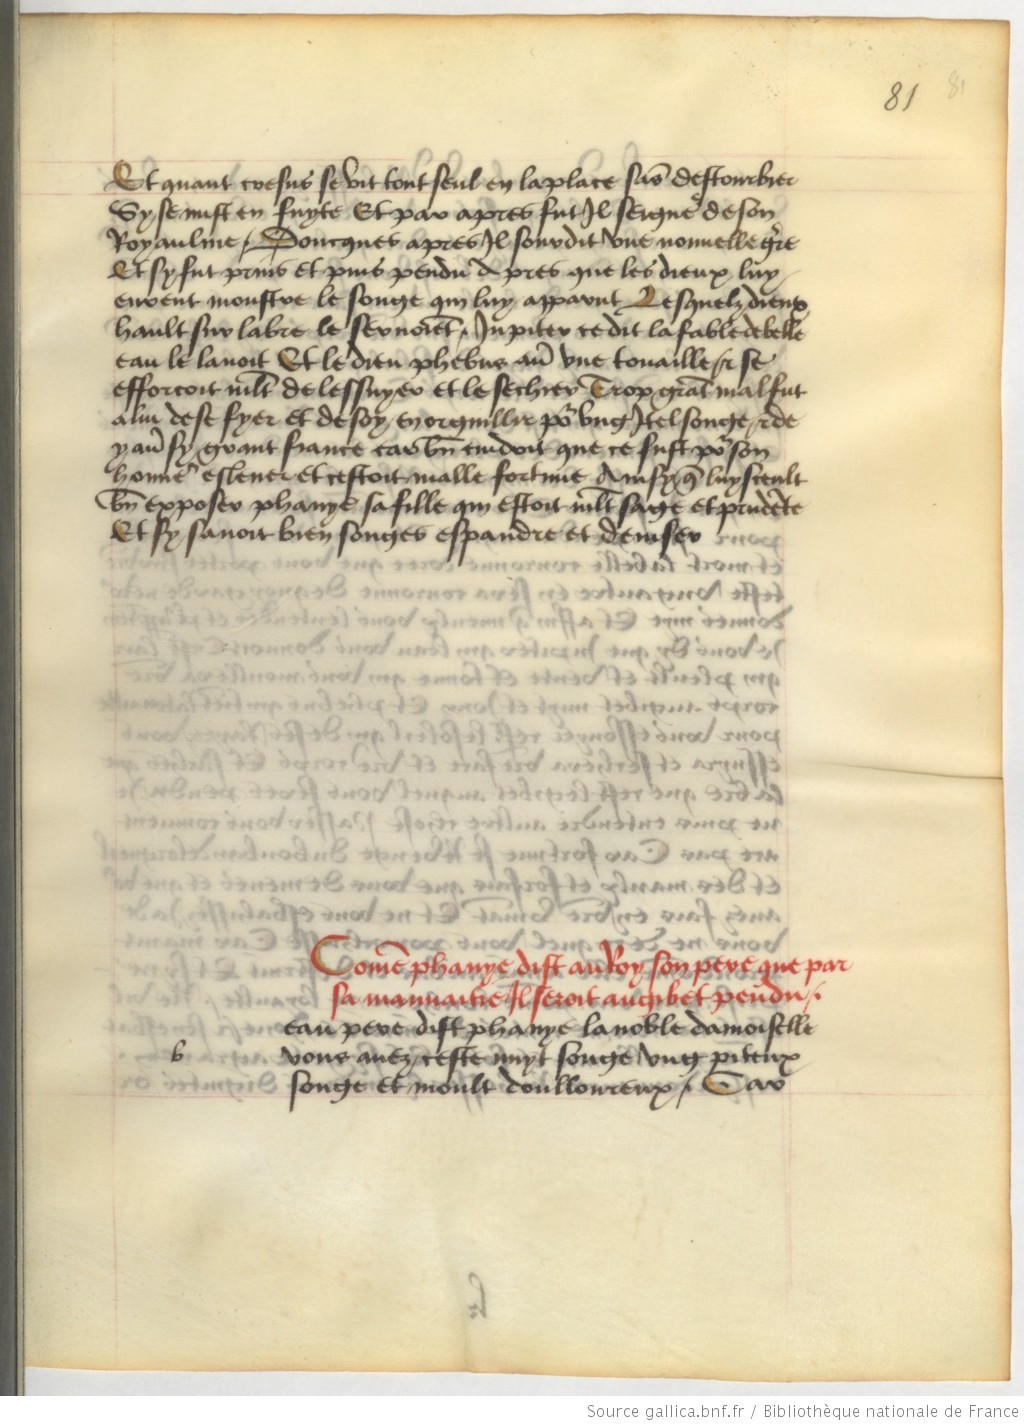 81 81
Et quant cresus se vit tout seul en la place sãs destourbier
Sy se mist en fuyte Et par apres fut Il seigne de son
Royaulme / Doncques apres Il sourdit vne nouuelle gr̃re
Et sy fut prins et puis pendu Apres que les dieux luy
eurent monstre le songe qui luy apparut Lesquelz dieux
hault sur labre le seruoiẽt / Jupiter ce dit la fable de belle
eau le lauoit Et le dieu phebus auͥ vne touaille / et se
efforcoit mlt̃ de lessuyer et le sechier Trop grãt mal fut
a lui de se fyer et de soy enorguillir po᷑ vng Itel songe / et de
y auͥ sy grant fiance car bñ cuidoit que ce fust po᷑ son
honne᷑ esleuer et cestoit malle fortune Ainsy q̃ luy sceult
bñ exposer phanye sa fille qui estoit mlt̃ sage et prudẽte
Et sy sauoit bien songes espandre et deuiser
Comẽ phanye dist au Roy son pere que par
sa mauuaitie Il seroit au gibet pendu /.
eau pere dist phanye la noble damoiselle
b vous auez ceste nuyt songe vng piteux
songe et moult doulloureux / Car
Source gallica.bnf.fr / Bibliothèque nationale de France